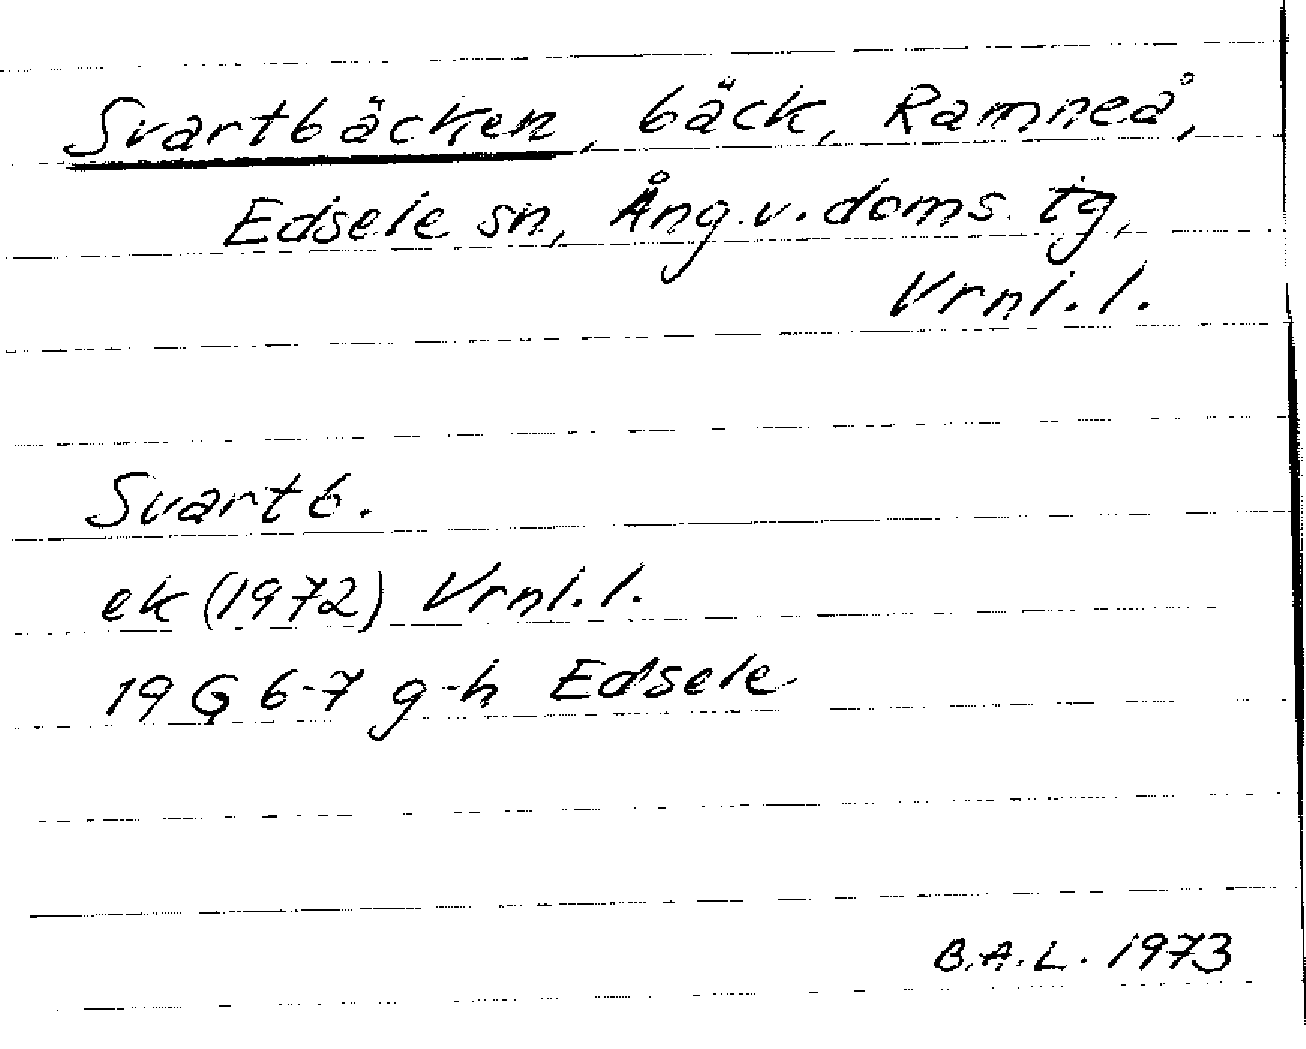 Svartbäcken, bäck, Ramneå,
Edsele sn, Ång.v.doms.tg,
Vrnl.l.
Svartb.
ek (1972) Vrnl.l.
19 G 6-7 g-h Edsele
B.A.L. 1973